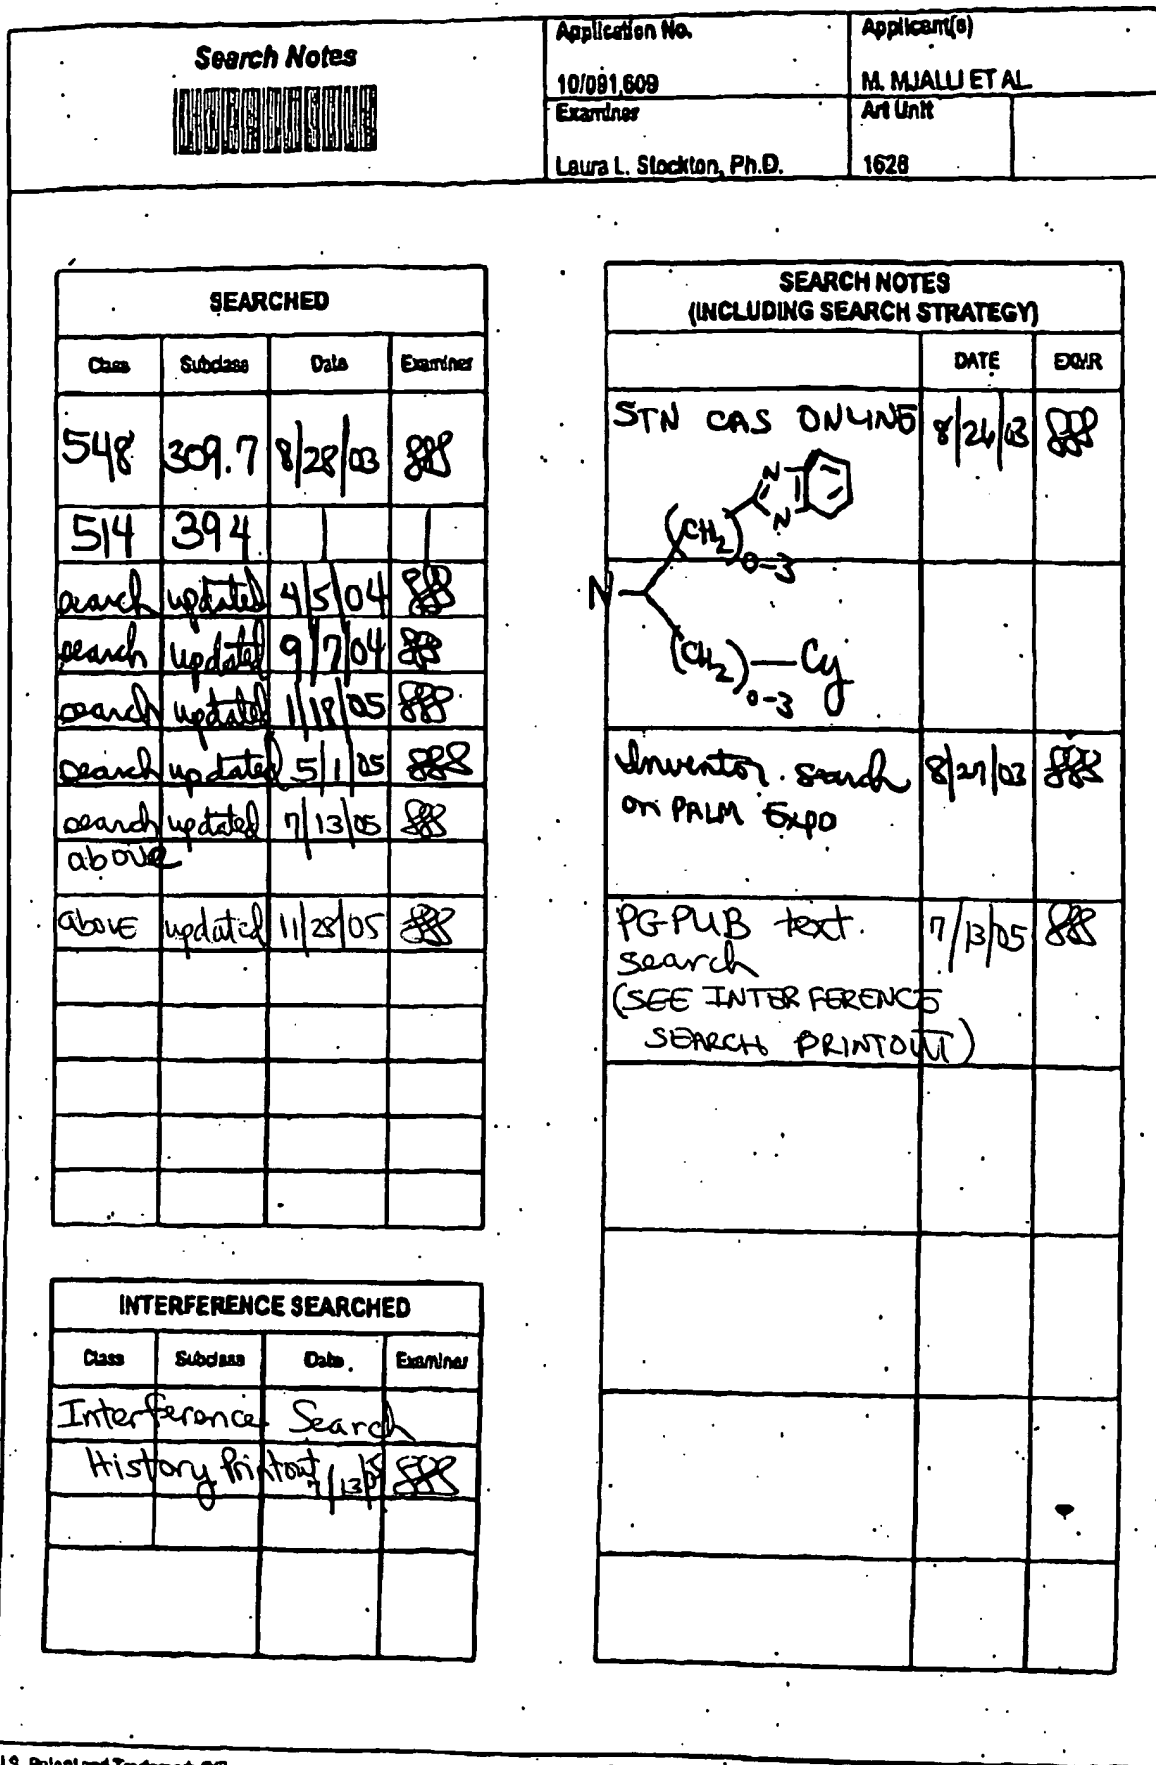 Search Notes
Application No.
10/091,609
Applicant(s)
M. MJALLI ET AL
Examiner
Laura L. Stockton, Ph.D.
Art Unit
1626
SEARCHED
Class Subclass Date Examiner
548 309.7 8/28/03
514 394
search updated 4/5/04
search updated 9/7/04
search updated 1/18/05
search updated 5/1/05
search updated 7/13/05
above
above updated 11/28/05
INTERFERENCE SEARCHED
Class Subclass Date Examiner
Interference Search
History Printout 7/13/05
SEARCH NOTES
(INCLUDING SEARCH STRATEGY)
DATE EXMR
STN CAS ONLINE 8/26/03
N
N
(CH2)0-3
N
(CH2)0-3—Cy
Inventor search 8/27/03
on PALM Expo
PGPUB text 7/13/05
search
(SEE INTERFERENCE
SEARCH PRINTOUT)